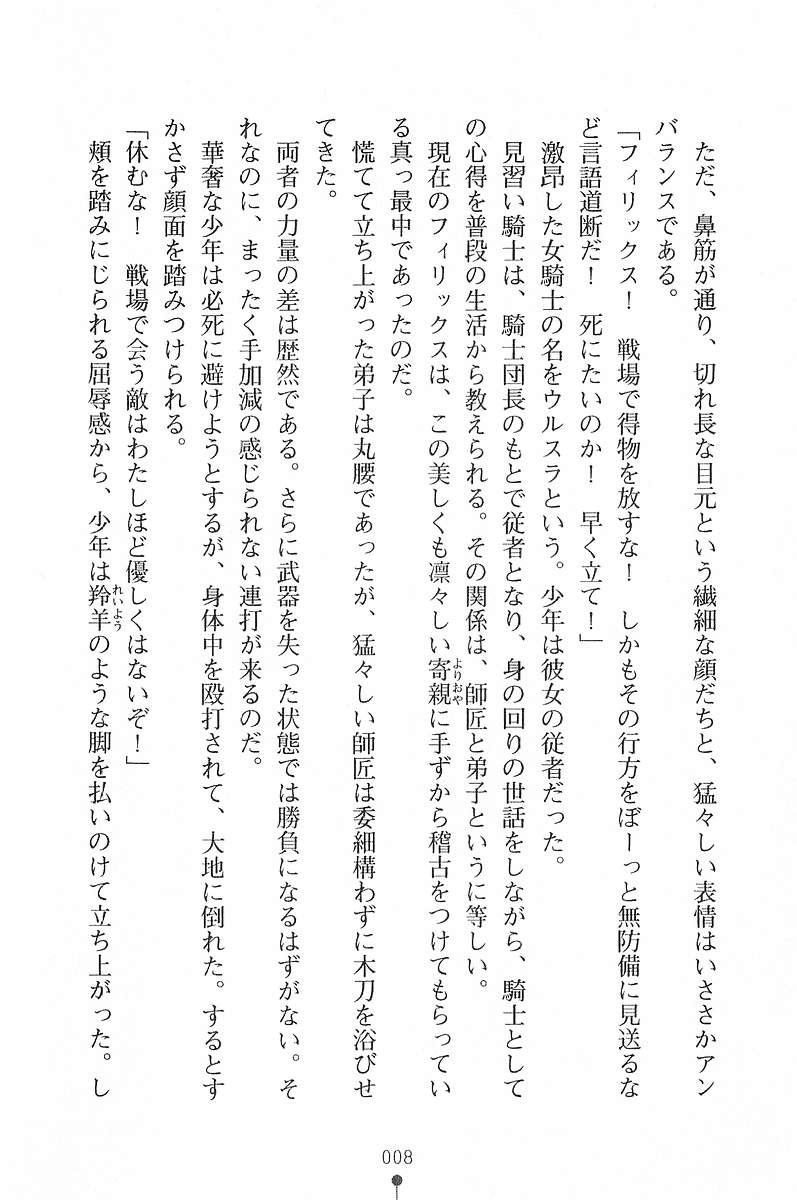 ただ、鼻筋が通り、切れ長な目元という繊細な顔だちと、猛々しい表情はいささかアン
バランスである。
「フィリックス！　戦場で得物を放すな！　しかもその行方をぼーっと無防備に見送るな
ど言語道断だ！　死にたいのか！　早く立て！」
　激昂した女騎士の名をウルスラという。少年は彼女の従者だった。
　見習い騎士は、騎士団長のもとで従者となり、身の回りの世話をしながら、騎士として
の心得を普段の生活から教えられる。その関係は、師匠と弟子というに等しい。
　現在のフィリックスは、この美しくも凛々しい寄親よりおやに手ずから稽古をつけてもらってい
る真っ最中であったのだ。
　慌てて立ち上がった弟子は丸腰であったが、猛々しい師匠は委細構わずに木刀を浴びせ
てきた。
　両者の力量の差は歴然である。さらに武器を失った状態では勝負になるはずがない。そ
れなのに、まったく手加減の感じられない連打が来るのだ。
　華奢な少年は必死に避けようとするが、身体中を殴打されて、大地に倒れた。するとす
かさず顔面を踏みつけられる。
「休むな！　戦場で会う敵はわたしほど優しくはないぞ！」
　頬を踏みにじられる屈辱感から、少年は羚羊れいようのような脚を払いのけて立ち上がった。し
008